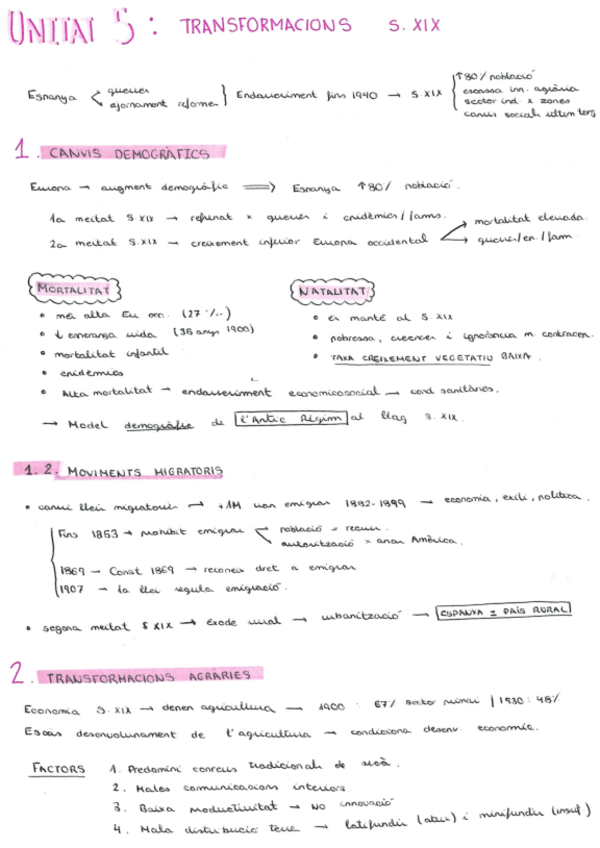 UNITAT 5: TRANSFORMACIONS S. XIX
Espanya < guerres
ajornament reformes } Endarreriment fins 1940 → S. XIX { ↑80% població
escassa inn. agrària
sector ind. x zones
canvis socials últim terç
1. CANVIS DEMOGRÀFICS
Europa → augment demogràfic ⟹ Espanya ↑80% població.
1a meitat S. XIX → refrenat x guerres i epidèmies/fams.
2a meitat S. XIX → creixement inferior Europa occidental < mortalitat elevada
guerres/ep./fam
MORTALITAT
• més alta Eu occ. (27 ‰)
• ↓ esperança vida (35 anys 1900)
• mortalitat infantil
• epidèmies
• Alta mortalitat → endarreriment economicosocial → cond sanitàries.
→ Model demogràfic de l'Antic Règim al llarg S. XIX.
NATALITAT
• es manté al S XIX
• pobressa, creences i ignorància m. contracep.
• TAXA CREIXEMENT VEGETATIU BAIXA.
1.2. MOVIMENTS MIGRATORIS
• canvi lleis migratories → +1M van emigrar 1882-1899 → economia, exili, política.
Fins 1853 → prohibit emigrar < població = recurs.
autorització x anar Amèrica.
1869 → Const 1869 → reconeix dret a emigrar
1907 → 1a llei regula emigració.
• segona meitat S XIX → èxode rural → urbanització → ESPANYA = PAÍS RURAL
2. TRANSFORMACIONS AGRÀRIES
Economia S. XIX → depèn agricultura → 1900: 67% sector primari | 1930: 48%
Escàs desenvolupament de l'agricultura → condiciona desenv. econòmic.
FACTORS 1. Predomini conreus tradicionals de secà.
2. Males comunicacions interiors.
3. Baixa productivitat → NO innovació
4. Mala distribució terra → latifundis (abus) i minifundis (insuf)